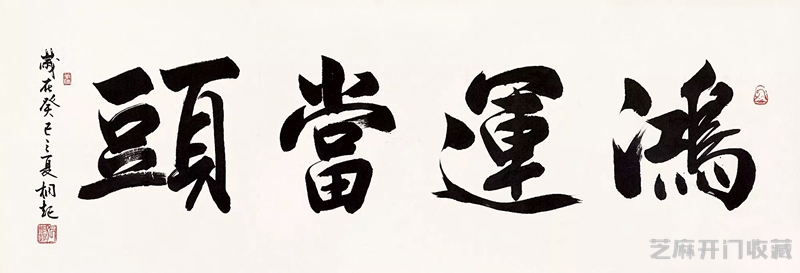 鴻運當頭
歲在癸巳之夏桐起
芝麻开门收藏